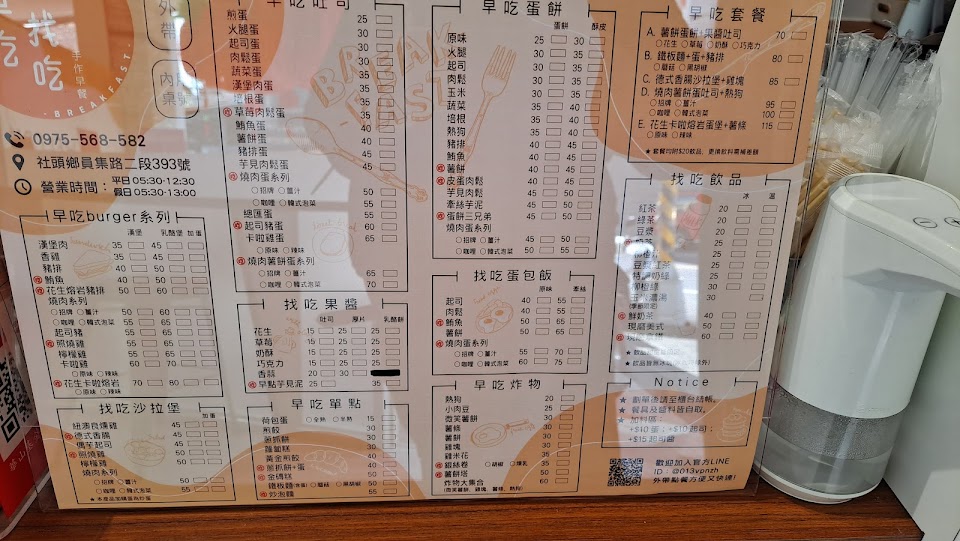 找吃
手作早餐
·BREAKFAST·
外帶
內用
桌號
0975-568-582
社頭鄉員集路二段393號
營業時間：平日05:30-12:30
假日05:30-13:00
早吃burger系列
漢堡 乳酪堡 加蛋
漢堡肉 35 45
香雞 35 45
豬排 40 50
鮪魚 40 50
花生熔岩豬排 50 60
燒肉系列
○招牌 ○薑汁 50 60
○咖哩 ○韓式泡菜 55 65
起司豬 55 65
照燒雞 55 65
檸檬雞 55 65
卡啦雞 60 70
○原味 ○辣味
花生卡啦熔岩 70 80
○原味 ○辣味
找吃沙拉堡
加蛋
紐澳良燻雞 45
德式香腸 45
偶芋起司 45
照燒雞 50
檸檬雞 50
燒肉系列
○招牌 ○薑汁 50
○咖哩 ○韓式泡菜 55
早吃吐司
煎蛋 25
火腿蛋 30
起司蛋 30
肉鬆蛋 30
蔬菜蛋 30
漢堡肉蛋 35
培根蛋 40
草莓肉鬆蛋 40
鮪魚蛋 40
薯餅蛋 40
豬排蛋 45
芋見肉鬆蛋 45
燒肉蛋系列
○招牌 ○薑汁 50
○咖哩 ○韓式泡菜 55
總匯蛋 55
起司豬蛋 60
卡啦雞蛋 65
○原味 ○辣味
燒肉薯餅蛋系列
○招牌 ○薑汁 65
○咖哩 ○韓式泡菜 70
找吃果醬
吐司 厚片 乳酪餅
花生 15 25 25
草莓 15 25 25
奶酥 15 25 25
巧克力 15 25 25
香蒜 20 30
早點芋見泥 25 35
早吃單點
荷包蛋 ○全熟 ○半熟 15
煎餃 30
蔥抓餅 30
蘿蔔糕 30
黃金煎餃
蔥抓餅+蛋 40
金磚糕
鐵板麵(含蛋) ○蘑菇 ○黑胡椒 50
炒泡麵 55
早吃蛋餅
蛋餅 酥皮
原味 25 30
火腿 30 35
起司 30 35
肉鬆 30 35
玉米 30 35
蔬菜 30 35
培根 35 40
熱狗 35 40
豬排 40 45
鮪魚 40 45
薯餅 40 45
皮蛋肉鬆 40 45
芋見肉鬆 45 50
牽絲芋泥 45 50
蛋餅三兄弟 45 50
燒肉蛋系列
○招牌 ○薑汁 45 50
○咖哩 ○韓式泡菜 50 55
找吃蛋包飯
原味 牽絲
起司 40 55
肉鬆 40 55
鮪魚 50 65
薯餅 50 65
燒肉蛋系列
○招牌 ○薑汁 55 70
○咖哩 ○韓式泡菜 60 75
早吃炸物
熱狗 20
小肉豆 25
微笑薯餅 30
薯條 30
薯餅 30
雞塊 30
雞米花 35
銀絲卷 ○胡椒 ○煉乳 35
薯餅塔 50
炸物大集合 60
(微笑薯餅、雞塊、薯條、熱狗)
早吃套餐
A. 薯餅蛋餅+果醬吐司 70
○花生 ○草莓 ○奶酥 ○巧克力
B. 鐵板麵+蛋+豬排 80
○蘑菇 ○黑胡椒
C. 德式香腸沙拉堡+雞塊 85
D. 燒肉薯餅蛋吐司+熱狗
○招牌 ○薑汁 95
○咖哩 ○韓式泡菜 100
E. 花生卡啦熔岩蛋堡+薯條 115
○原味 ○辣味
★套餐均附$20飲品，更換飲料需補差額
找吃飲品
冰 溫
紅茶 20 20
綠茶 20
豆漿 20 20
奶茶
豆漿紅茶
鮮奶茶 40
現磨美式
Notice
★ 劃單後請至櫃台結帳。
★ 餐具及醬料皆自取。
★ 加料區：
+$10 蛋；+$10 起司；
+$15 起司醬
歡迎加入官方LINE
ID：@013vpnzh
外帶點餐方便又快速！